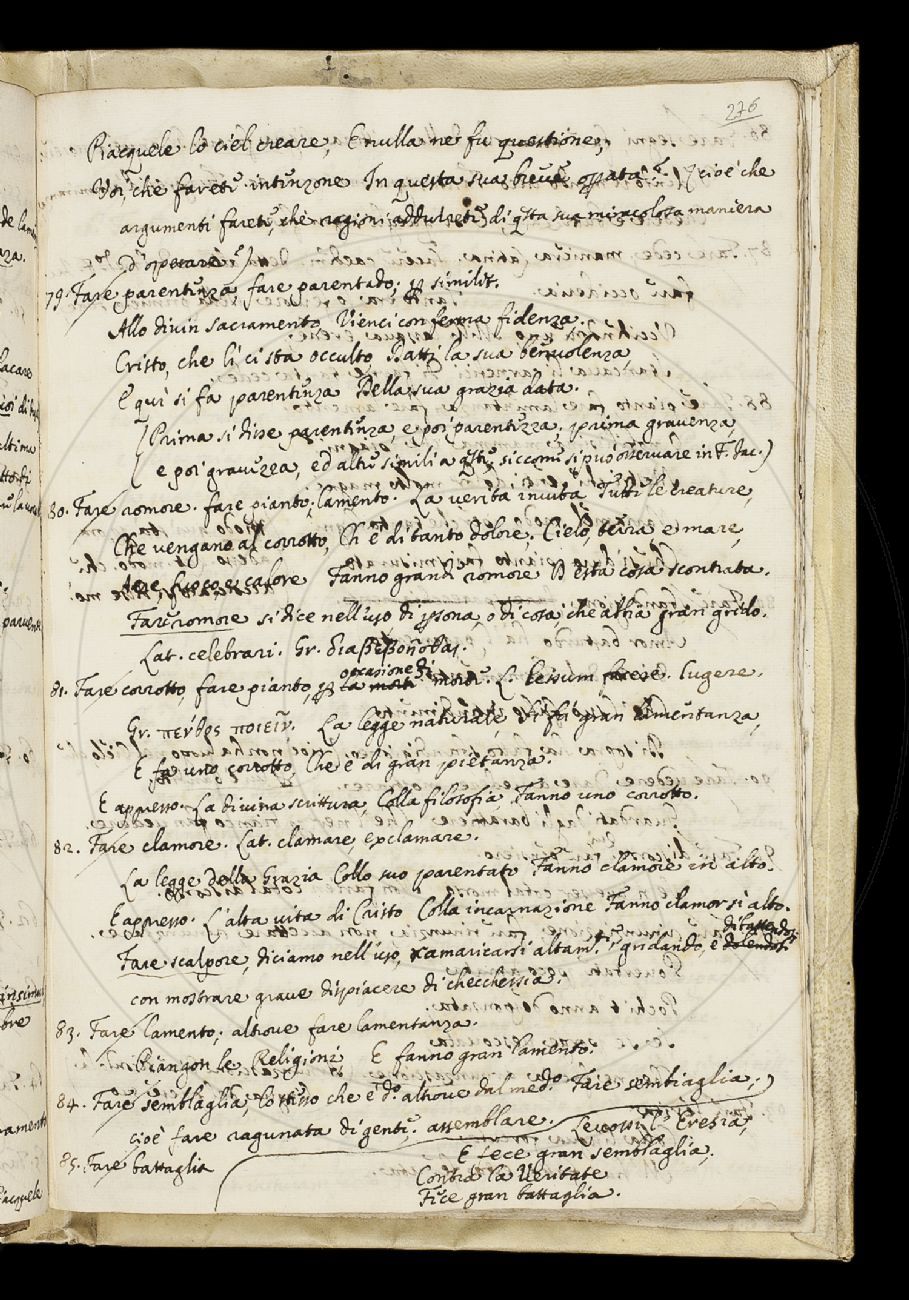 276
Piacquele lo ciel creare, E nulla ne fu questione,
Voi, che farete intenzone In questa sua breve oprata? (cioè che
argumenti farete, che ragioni addurrete) di qsta sua miracolosa maniera
d'operare?)
79. Fare parentenza fare parentado; p similit.
Allo divin sacramento Vienci con ferma fidenza.
Cristo, che lì ci sta occulto Batti la sua benvolenza
E quì si fa parentenza Della sua grazia data.
(Prima si disse parentenza, e poi parentezza, prima gravenza,
e poi gravezza, ed altri simili a qsti, siccome si può osservare in F. Jac.)
80. Fare romore. fare pianto, lamento. La verità invita Tutte le creature,
Che vengano al corrotto, Ch'è di tanto dolore, Cielo, terra e mare,
Aere, fuoco e calore Fanno grande romore D'esta cosa scontrata.
Fare romore si dice nell'uso di psona, o di cosa, che abbia gran grido.
Lat. celebrari. Gr. διαβεβοῆσθαι.
81. Fare corrotto, fare pianto, p la morte occasione di morte. L. lessum facere. lugere.
Gr. πένθος ποιεῖν. La legge naturale Si fa gran lamentanza,
E fa uno corrotto, Che è di gran pietanza.
E appresso. La divina scrittura, Colla filosofia Fanno uno corrotto.
82. Fare clamore. Lat. clamare, exclamare.
La legge della Grazia Collo suo parentato Fanno clamore in alto.
E appresso. L'alta vita di Cristo Colla incarnazione Fanno clamor sì alto.
Fare scalpore, diciamo nell'uso, ramaricarsi altamte gridando, e dolendosi
con mostrare grave dispiacere di checchessia.
83. Fare lamento; altrove fare lamentanza.
Piangon le Religioni E fanno gran lamento.
84. Fare semblaglia, lo stesso che è do altrove dal medo Fare sembiaglia;
cioè fare ragunata di gente. assemblare. Levossi l'Eresia,
E fece gran semblaglia,
85. Fare battaglia
Contra la Veritate
Fece gran battaglia.